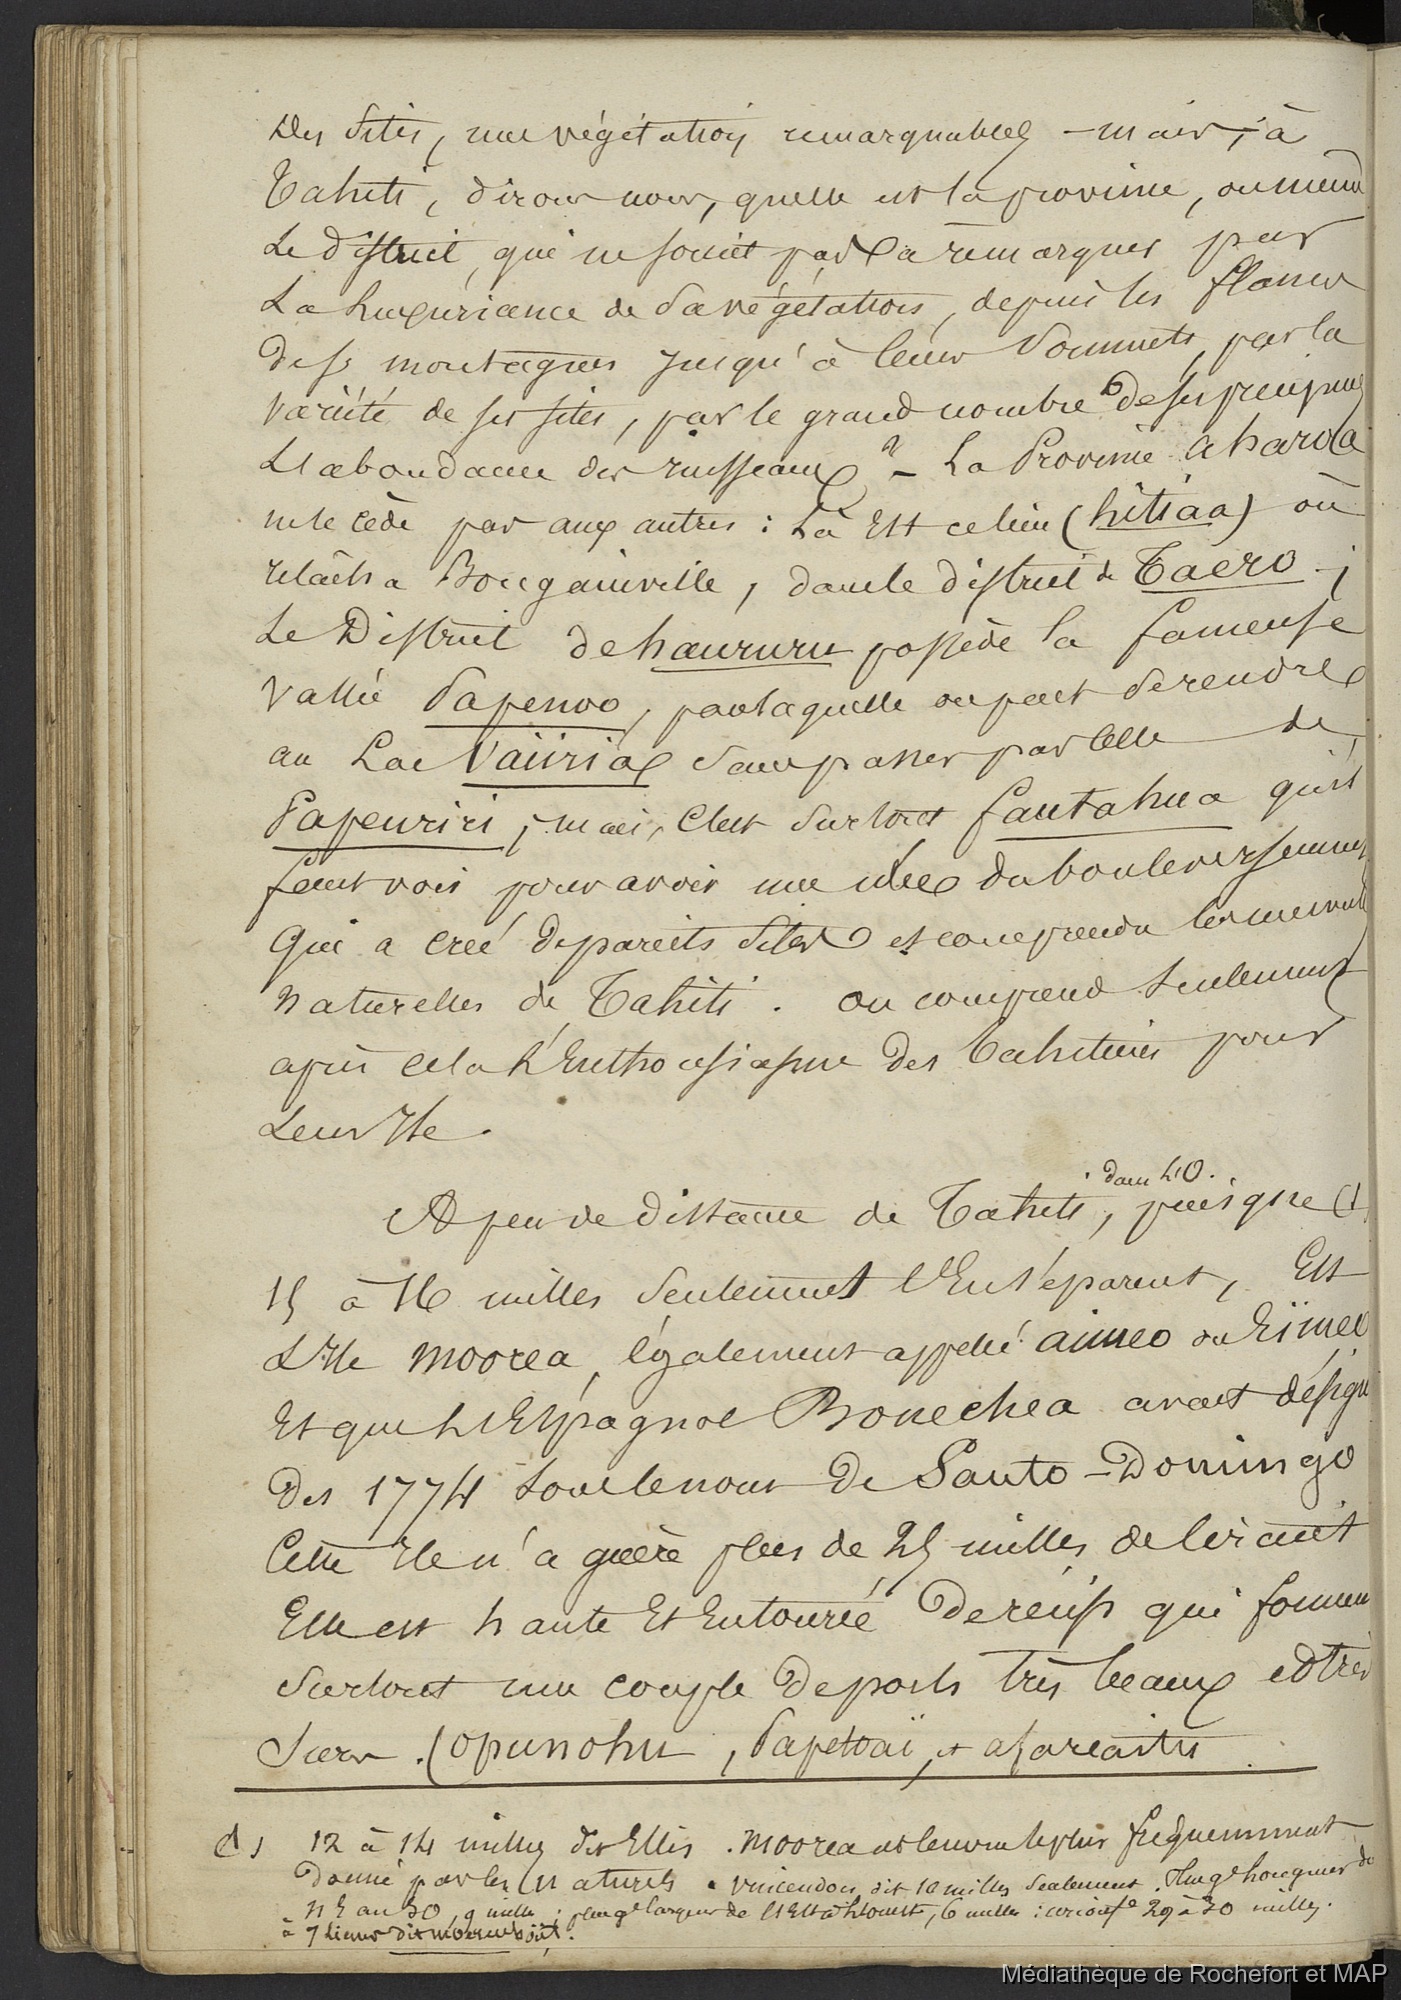 des sites, une végétation remarquables – mais, à
Tahiti, dirons nous, quelle est la province, ou même
le district, qui ne soient pas à remarquer par
la luxuriance de sa végétation, depuis les flancs
des montagnes jusqu'à leurs sommets, par la
variété de ses sites, par le grand nombre de ses
l'abondance des ruisseaux ? – La Province aharoa
ne le cède pas aux autres : là Est celui (hitiaa) où
relâcha Bougainville, dans le district de Taero ;
Le District de haururu possède la fameuse
Vallée Papenoo, par laquelle on peut se rendre
au Lac Vaïiria sans passer par celle de
Papeuriri ; mais, c'est surtout fautahua qu'il
faut voir pour avoir une idée du bouleversement
qui a créé de pareils sites et comprendre les merveilles
naturelles de Tahiti. on comprend seulement
après cela l'Enthousiasme des Tahitiens pour
leur Ile.
A peu de distance de Tahiti, dans l'O. puisque (1)
15 à 16 milles seulement l'En séparent, Est
l'Ile moorea, également appelé aimeo ou Eïmeo
Et que l'Espagnol Bonechea avait désigné
dès 1774 sous le nom de Santo-Domingo
Cette Ile n'a guère plus de 25 milles de circuit
Elle est haute Et Entourée de récifs qui forment
surtout une couple de ports très beaux et très
surs. (opunohu, Papetoaï, et afareaitu.
(1) 12 à 14 milles dit Ellis. moorea est le nom le plus fréquemment
donné par les naturels. Vincendon dit 10 milles seulement. Plus gde longueur du
N E au SO, 9 milles ; plus gde largeur de l'Est à l'Ouest, 6 milles : circonfce 29 à 30 milles.
à 7 lieues dit moerenhout.

Médiathèque de Rochefort et MAP